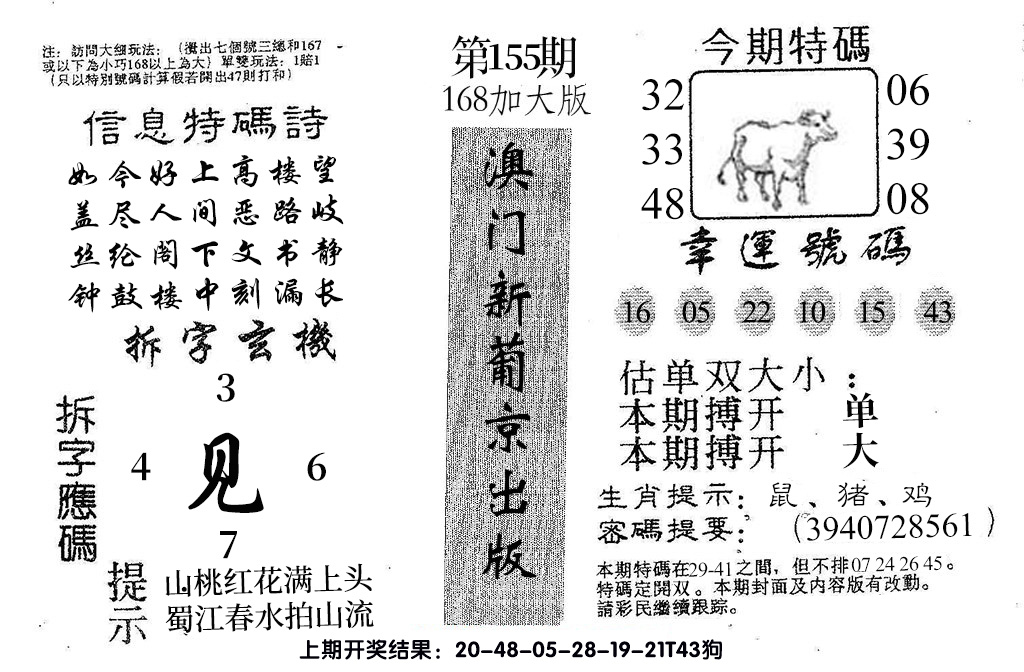 注：訪問大细玩法：（攪出七個號三總和167
或以下為小巧168以上為大）單雙玩法：1賠1
（只以特別號碼計算假若開出47則打和）
信息特碼詩
如今好上高楼望
盖尽人间恶路岐
丝纶阁下文书静
钟鼓楼中刻漏长
拆字玄機
拆字應碼
3
4 见 6
7
提示
山桃红花满上头
蜀江春水拍山流
第155期
168加大版
澳门新葡京出版
今期特碼
32 06
33 39
48 08
幸運號碼
16 05 22 10 15 43
估单双大小：
本期搏开 单
本期搏开 大
生肖提示：鼠、猪、鸡
密碼提要：（3940728561）
本期特碼在29-41之間，但不排07 24 26 45。
特碼定開双。本期封面及内容版有改動。
請彩民繼續跟踪。
上期开奖结果：20-48-05-28-19-21T43狗